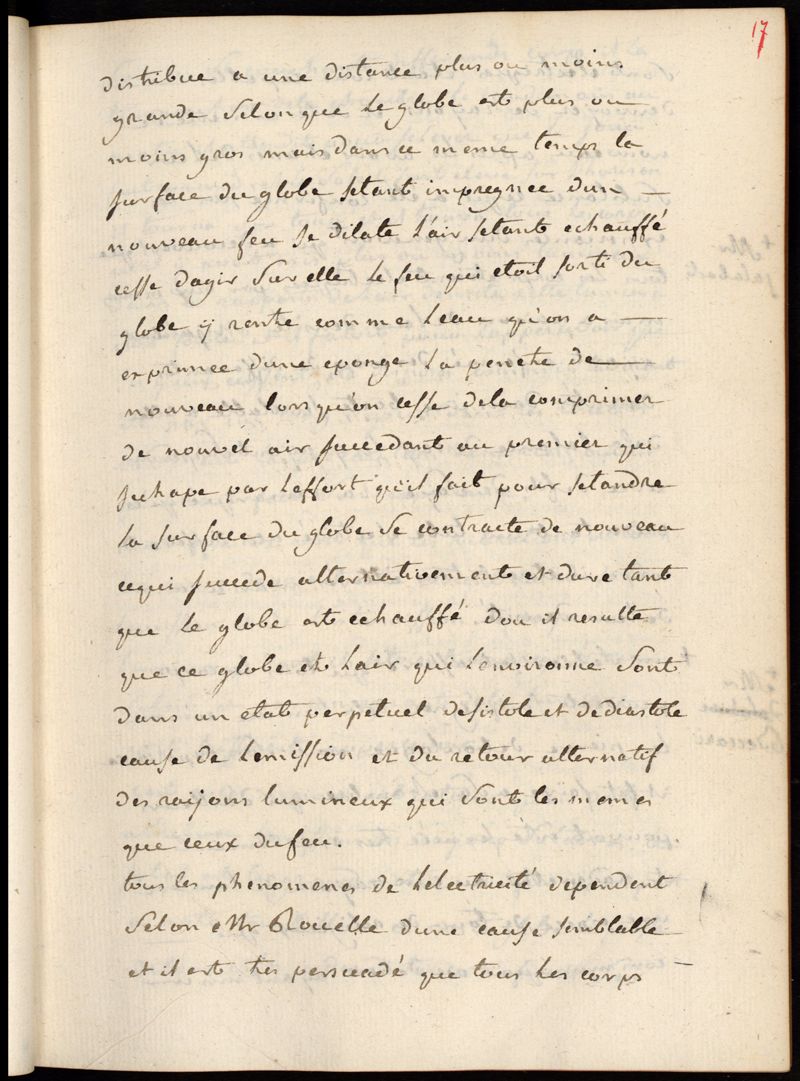 17
distribue a une distance plus ou moins
grande selon que le globe est plus ou
moins gros mais dans ce meme temps la
surface du globe setant impregnee dun —
nouveau feu se dilate l'air setant echauffé
cesse dagir sur elle le feu qui etoit sorti du
globe ÿ rentre comme leau qu'on a —
exprimee dune eponge la penetre de —
nouveau lorsqu'on cesse dela comprimer
de nouvel air succedant au premier qui
sechape par leffort qu'il fait pour setandre
la surface du globe se contracte de nouveau
cequi succede alternativement et dure tant
que le globe est echauffé dou il resulte
que ce globe et lair qui lenvironne sont
dans un etat perpetuel desistole et dediastole
cause de lemission et du retour alternatif
des raijons lumineux qui sont les memes
que ceux dufeu.
tous les phenomenes de lelectricité dependent
selon Mr Rouelle dune cause semblable
et il est tres persuadé que tous les corps —